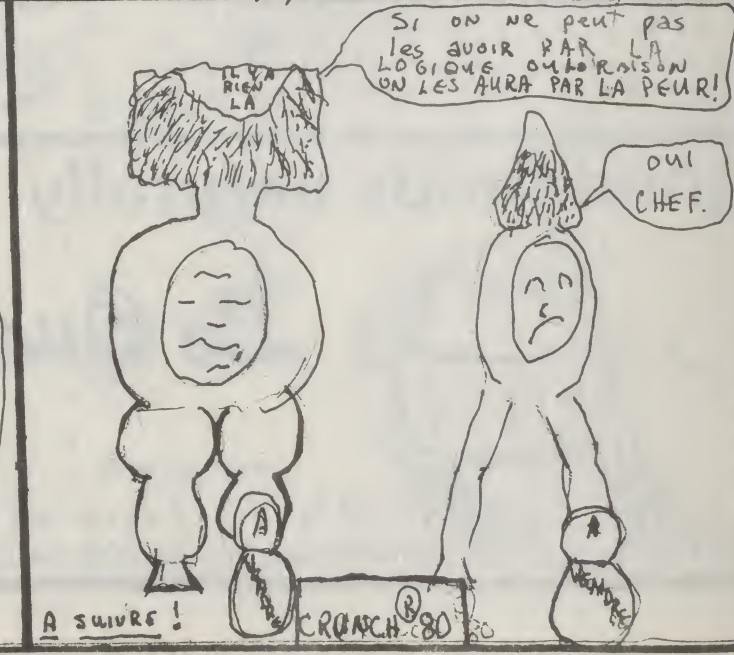 SI ON NE PEUT PAS
les AVOIR PAR LA
LOGIQUE OU LA RAISON
ON LES AURA PAR LA PEUR!
IL Y A
RIEN
LÀ
OUI
CHEF.
A
VENDRE
A
VENDRE
A SUIVRE!
CRUNCH ® 80